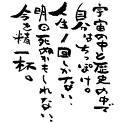 宇宙の中と歴史の中で
自分はちっぽけ。
人生1回しかない、
明日死ぬかもしれない、
今を精一杯。